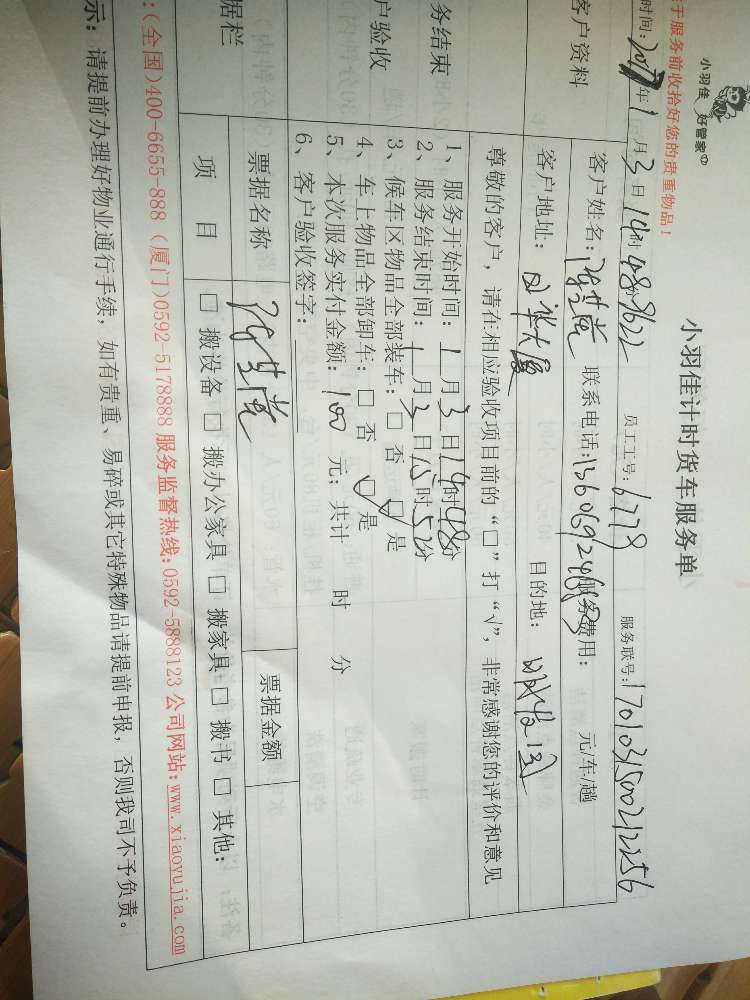 小羽佳 好管家
于服务前收拾好您的贵重物品！
小羽佳计时货车服务单
时间：2017年1月3日14时48 员工工号：6778 服务联号：170103150021225６
客户资料
客户姓名： 联系电话： 服务费用： 元/车/趟
客户地址： 大厦 目的地：
尊敬的客户，请在相应验收项目前的“□”打“√”，非常感谢您的评价和意见
务结束
户验收
1、服务开始时间：1月3日14时48分
2、服务结束时间：1月3日15时52分
3、候车区物品全部装车：□ 否 □√ 是
4、车上物品全部卸车：□ 否 □√ 是
5、本次服务实付金额：100 元；共计 时 分
6、客户验收签字：
据栏
票据名称 票据金额
项 目 □ 搬设备 □ 搬办公家具 □ 搬家具 □ 搬书 □ 其他：
：(全国)400-6655-888 (厦门)0592-5178888 服务监督热线：0592-5888123 公司网站：www.xiaoyujia.com
示：请提前办理好物业通行手续，如有贵重、易碎或其它特殊物品请提前申报，否则我司不予负责。